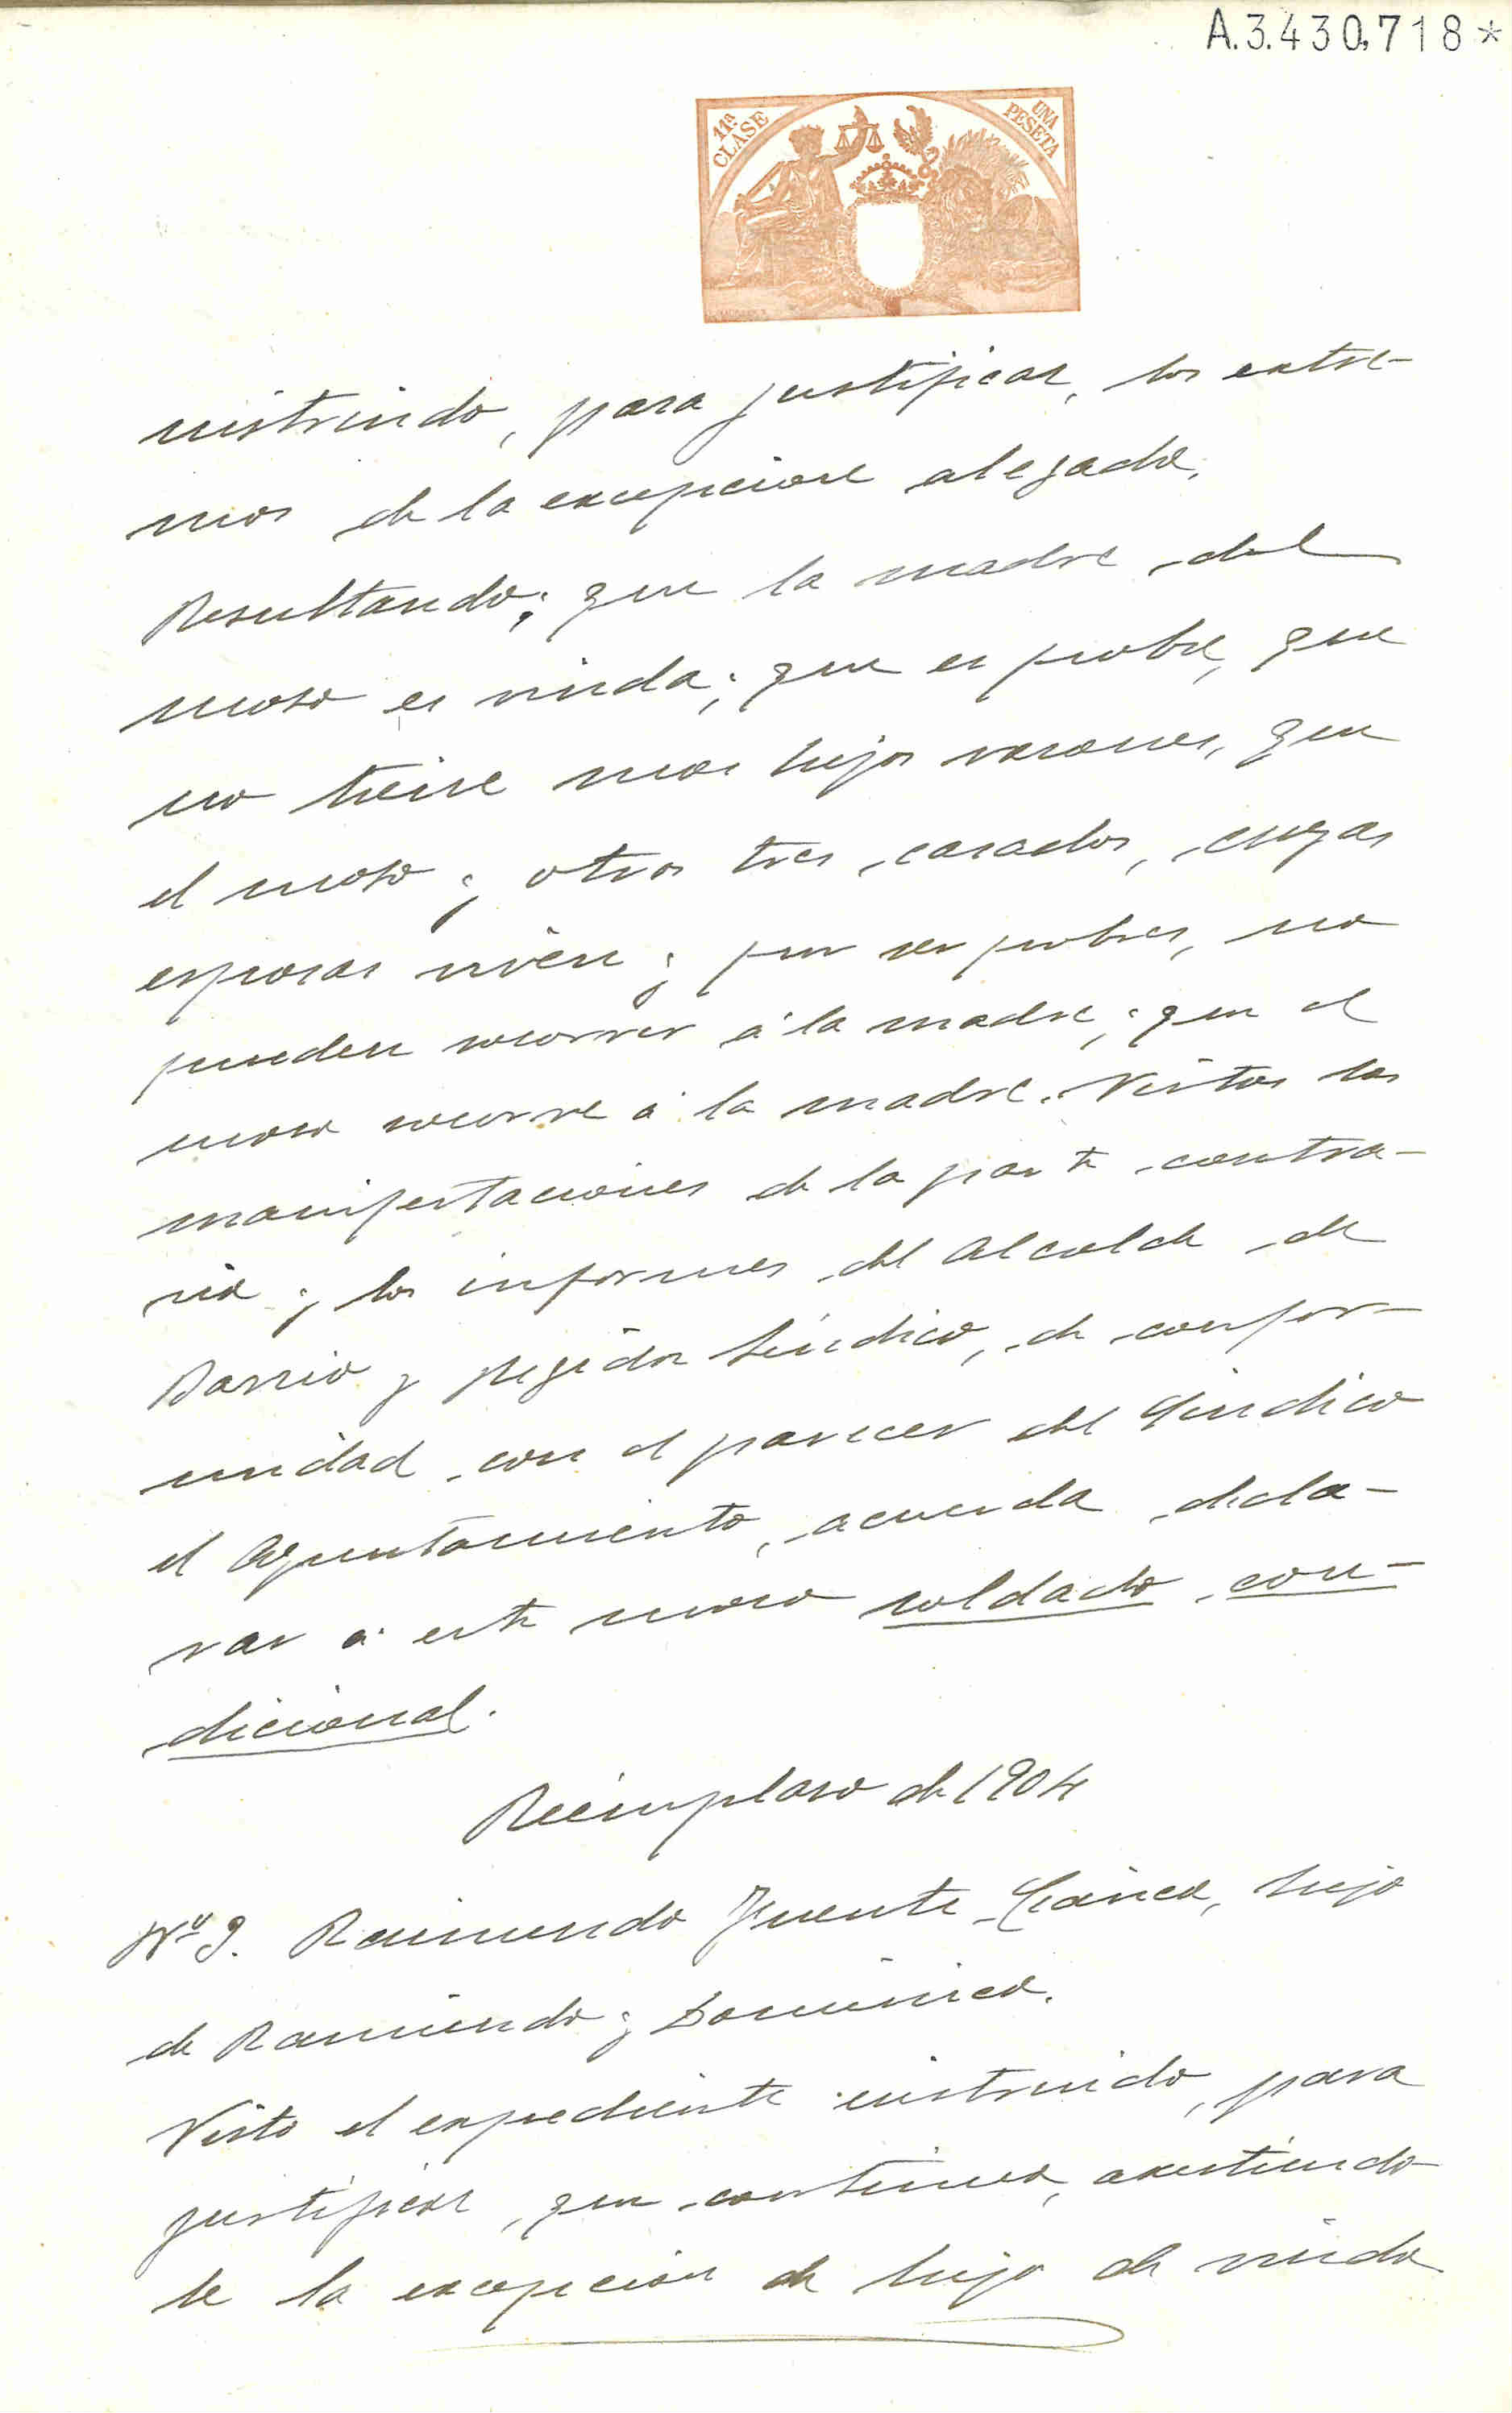 A.3.430.718*
11ª CLASE
UNA PESETA
nistruido, para justificar, los extre-
mos de la excepcion alegada.
Resultando; que la madre del
moso es viuda; que es pobre, que
no tiene mas hijos varones, que
el moso y otros tres casados, cuyas
esposas viven y por ser pobres, no
pueden socorrer á la madre; que el
moso socorre á la madre. Vistas las
manifestaciones de la parte contra-
ria y los informes del Alcalde de
Barrio y Regidor Síndico, de confor-
midad con el parecer del Síndico
el Ayuntamiento, acuerda decla-
rar á este moso soldado con-
dicional.
Reemplaso de 1904
Nº 9. Raimundo Fuente García, hijo
de Ramiundo y Dominica.
Visto el expediente instruido, para
justificar, que continua, asistiendo
le la excepcion de hijo de viuda